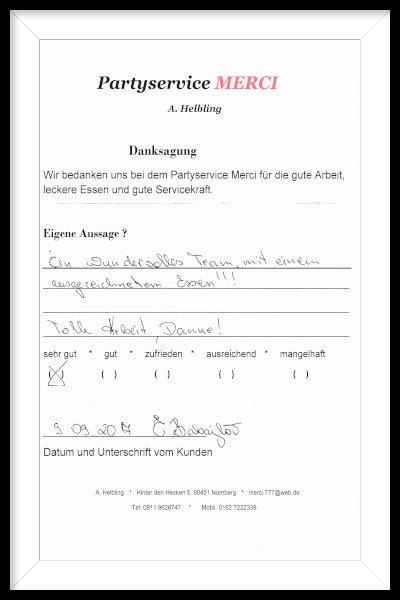 Partyservice MERCI
A. Helbling
Danksagung
Wir bedanken uns bei dem Partyservice Merci für die gute Arbeit,
leckere Essen und gute Servicekraft.
Eigene Aussage ?
Ein wundervolles Team, mit einem
ausgezeichnetem Essen!!!
Tolle Arbeit, Danke!
sehr gut * gut * zufrieden * ausreichend * mangelhaft
(X) ( ) ( ) ( ) ( )
9.09.2017
Datum und Unterschrift vom Kunden
A. Helbling * Hinter den Hecken 5, 90451 Nürnberg * merci.777@web.de
Tel: 0911 9626747 * Mobil: 0162 7222339